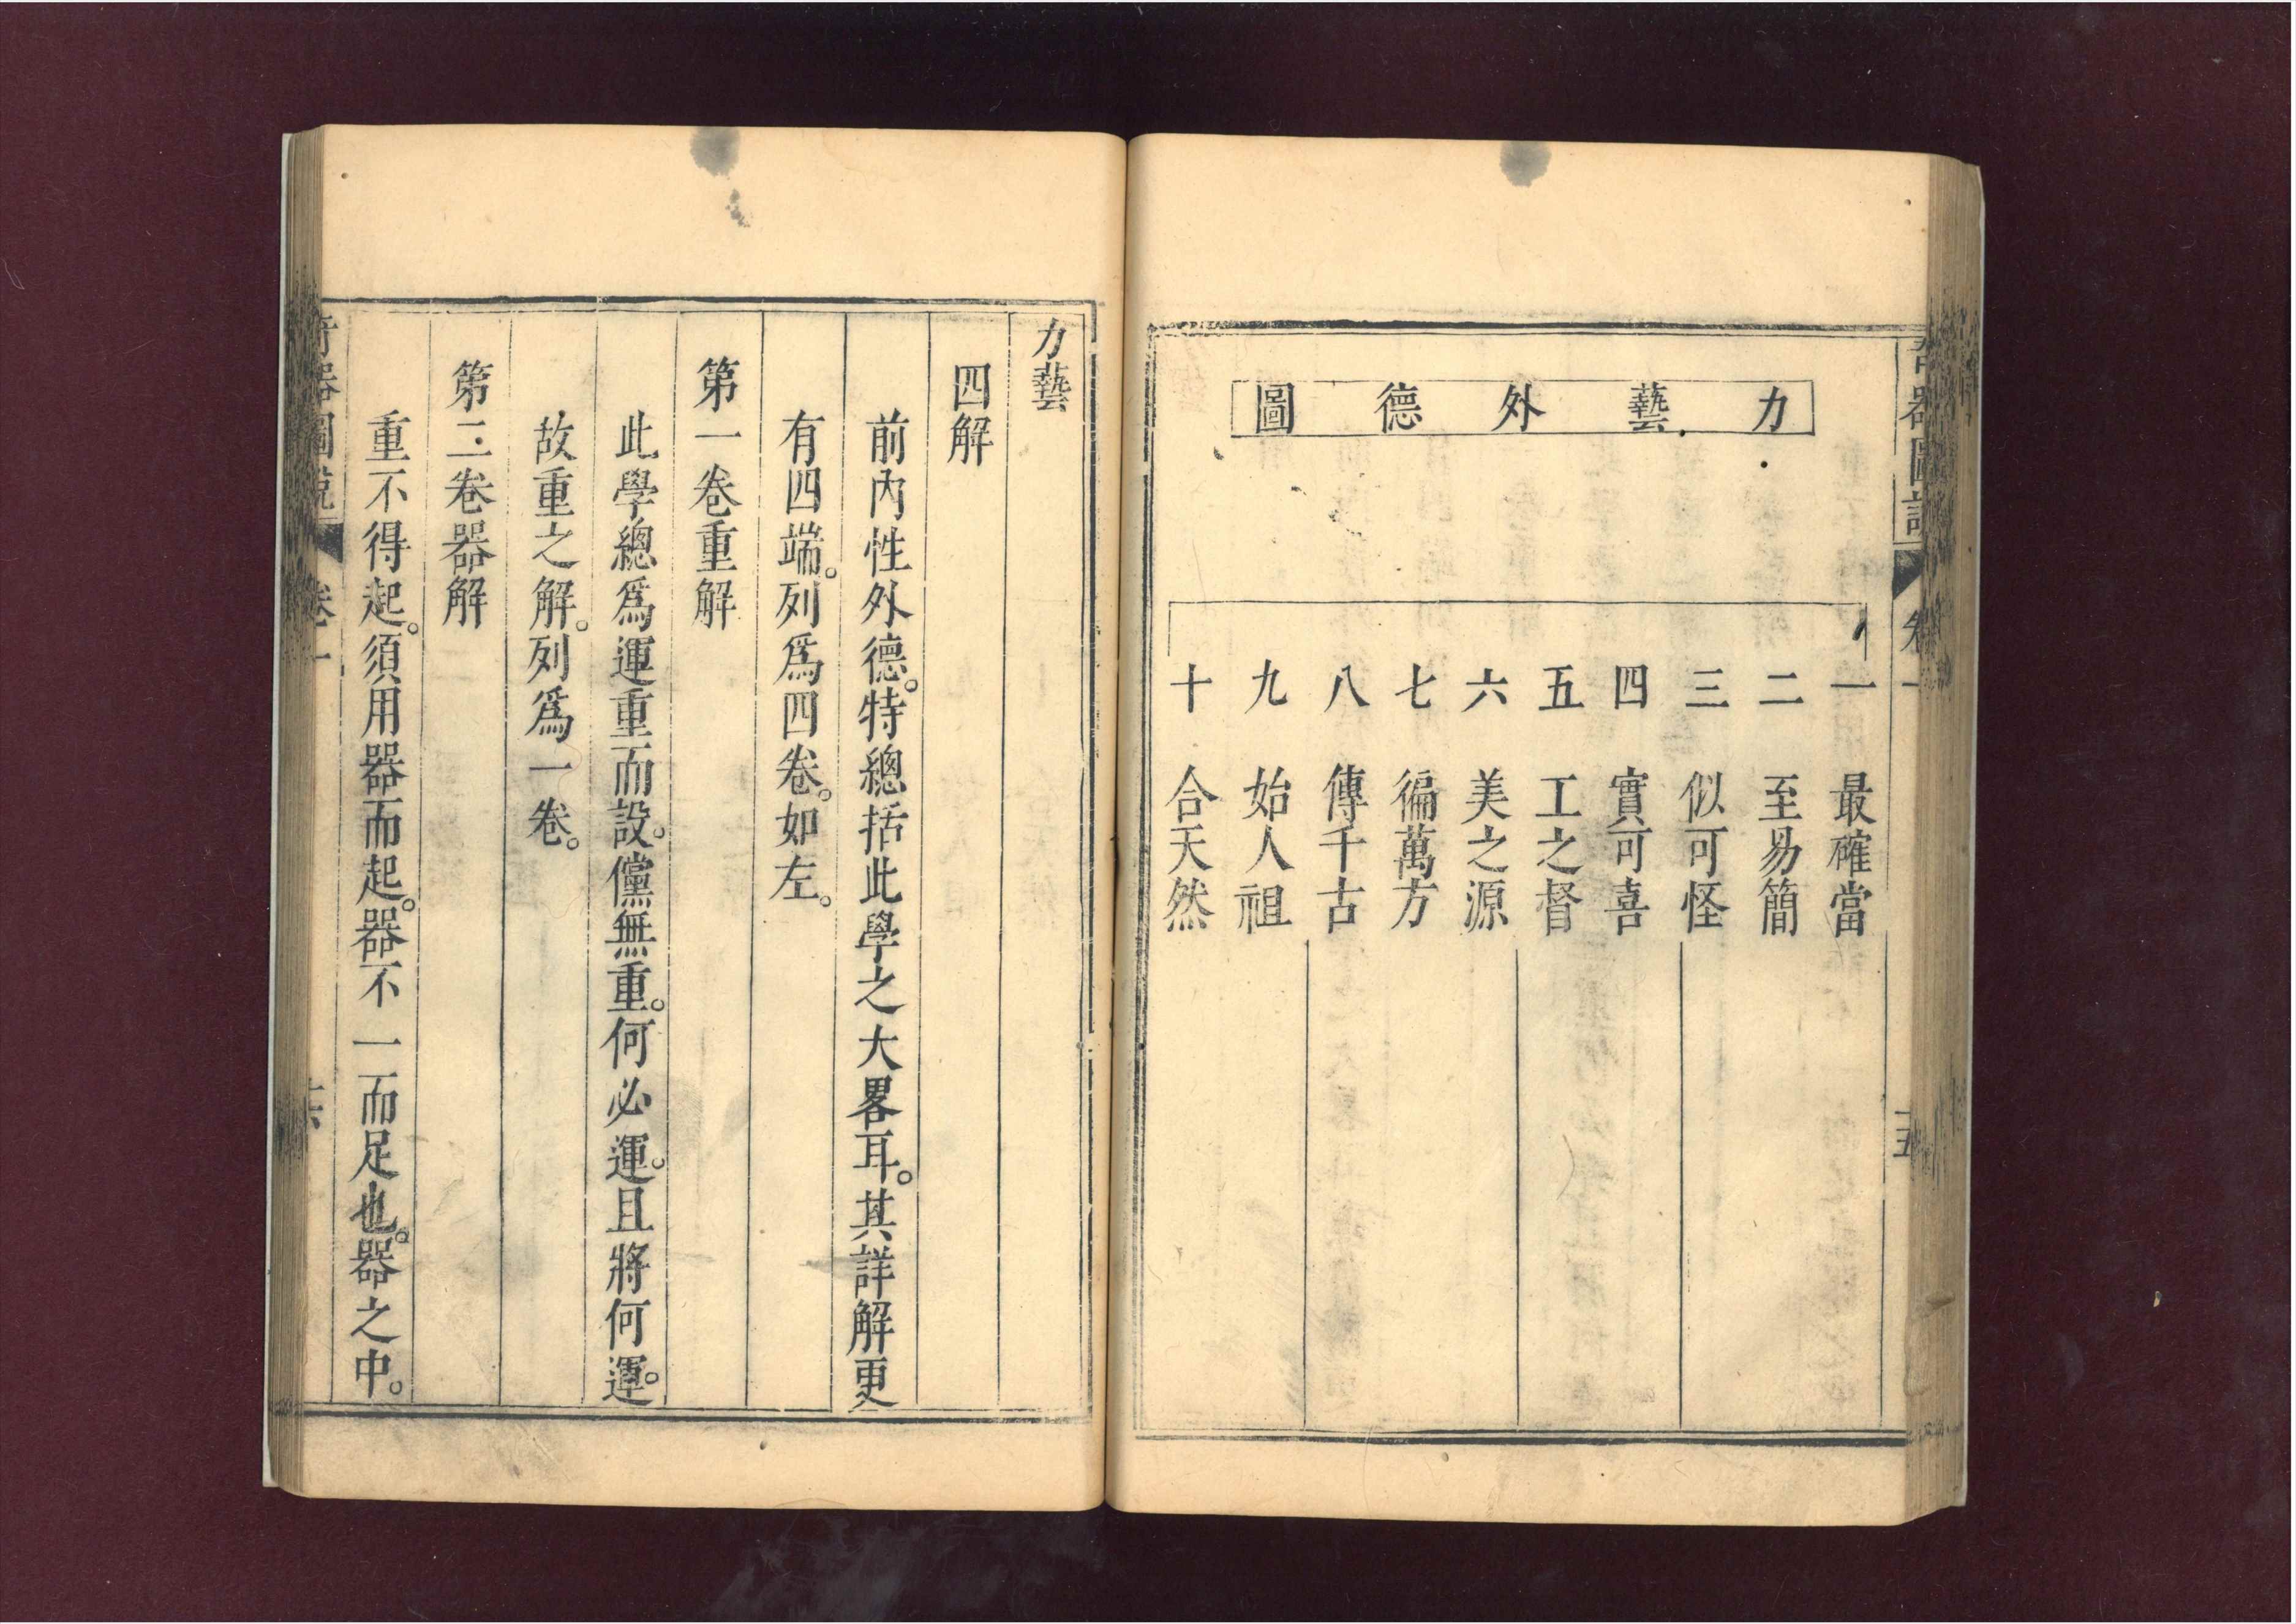 奇器圖說
卷一
十五
力藝外德圖
一 最確當
二 至易簡
三 似可怪
四 實可喜
五 工之督
六 美之源
七 徧萬方
八 傳千古
九 始人祖
十 合天然
力藝
四解
前內性外德。特總括此學之大畧耳。其詳解更
有四端。列爲四卷。如左。
第一卷重解
此學總爲運重而設。儻無重。何必運。且將何運。
故重之解。列爲一卷。
第二卷器解
重不得起。須用器而起。器不一而足也。器之中。
奇器圖說
卷一
十六